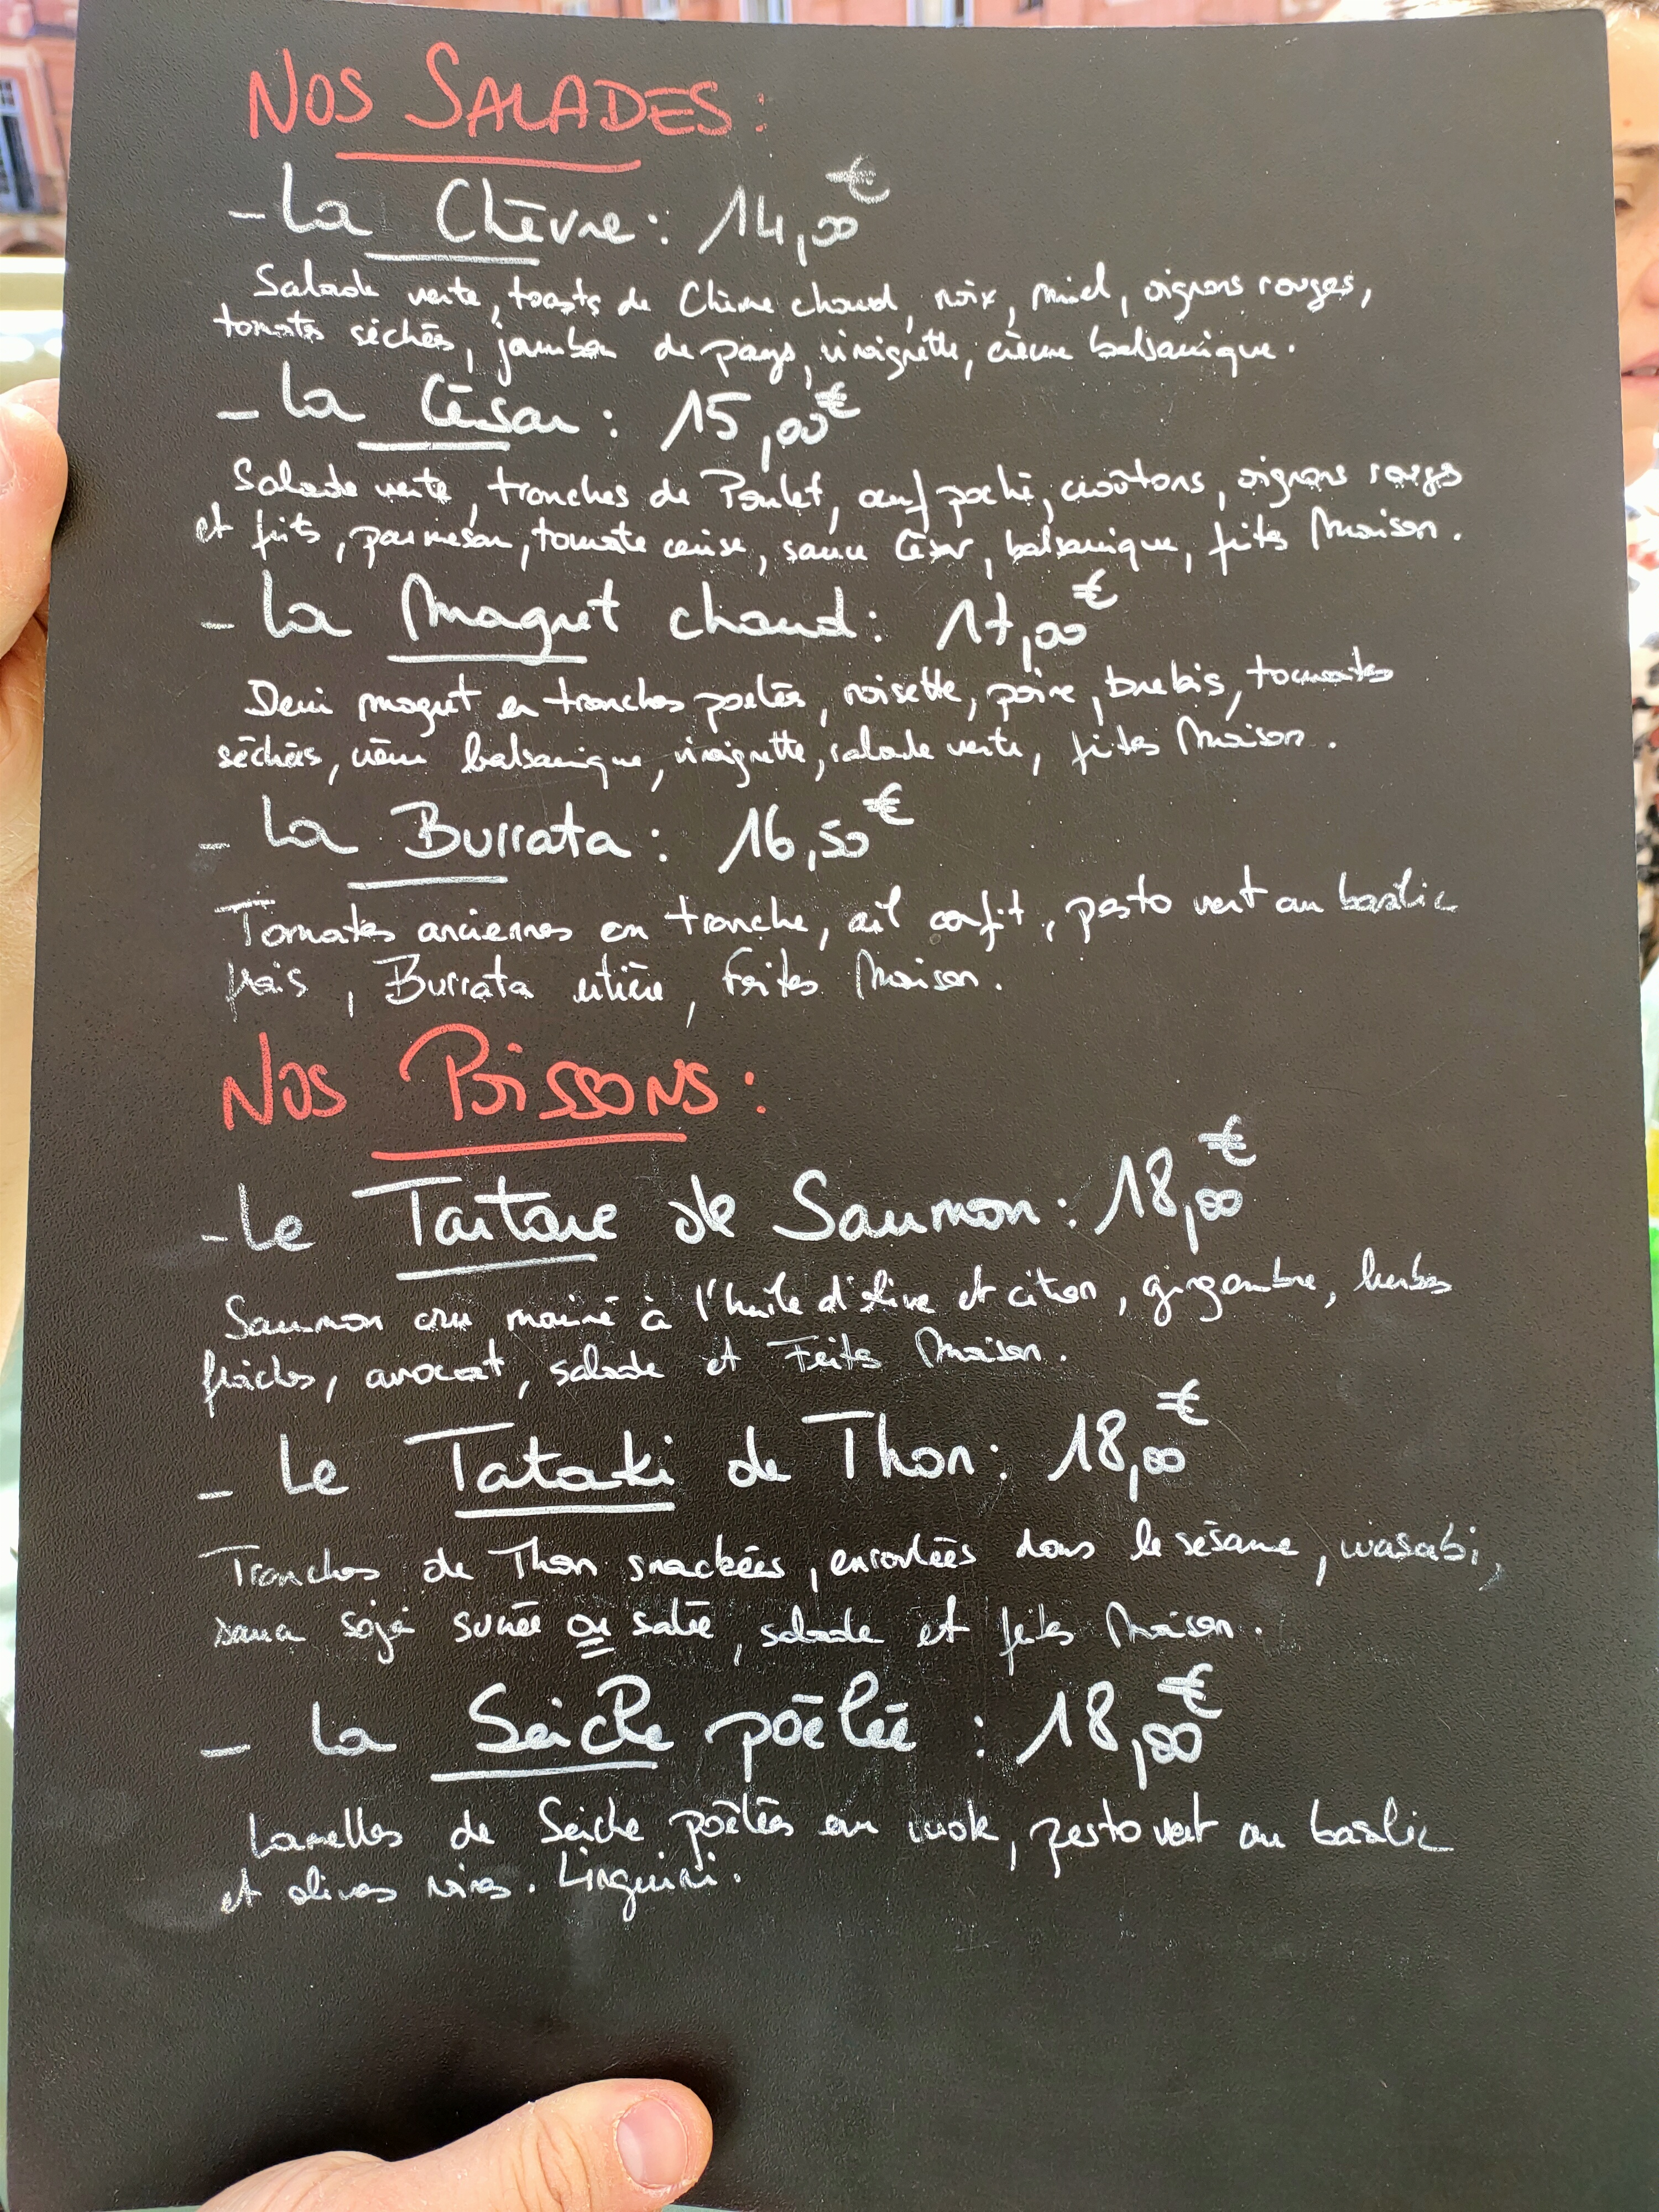 NOS SALADES:
- La Chèvre: 14,00€
Salade verte, toasts de Chèvre chaud, noix, miel, oignons rouges,
tomates séchées, jambon de pays, vinaigrette, crème balsamique.
- La César: 15,00€
Salade verte, tranches de Poulet, œuf poché, croûtons, oignons rouges
et frits, parmesan, tomate cerise, sauce César, balsamique, frites Maison.
- La Magret chaud: 17,00€
Demi magret en tranches poêlés, noisette, poire, brebis, tomates
séchées, crème balsamique, vinaigrette, salade verte, frites Maison.
- La Burrata: 16,50€
Tomates anciennes en tranche, ail confit, pesto vert au basilic
frais, Burrata entière, Frites Maison.
NOS POISSONS:
- Le Tartare de Saumon: 18,00€
Saumon cru mariné à l'huile d'olive et citron, gingembre, herbes
fraîches, avocat, salade et Frites Maison.
- Le Tataki de Thon: 18,00€
Tranches de Thon snackées, enroulées dans le sésame, wasabi,
sauce soja sucrée ou salée, salade et frites Maison.
- La Seiche poêlée: 18,00€
Lamelles de Seiche poêlées au wok, pesto vert au basilic
et olives noires. Linguini.